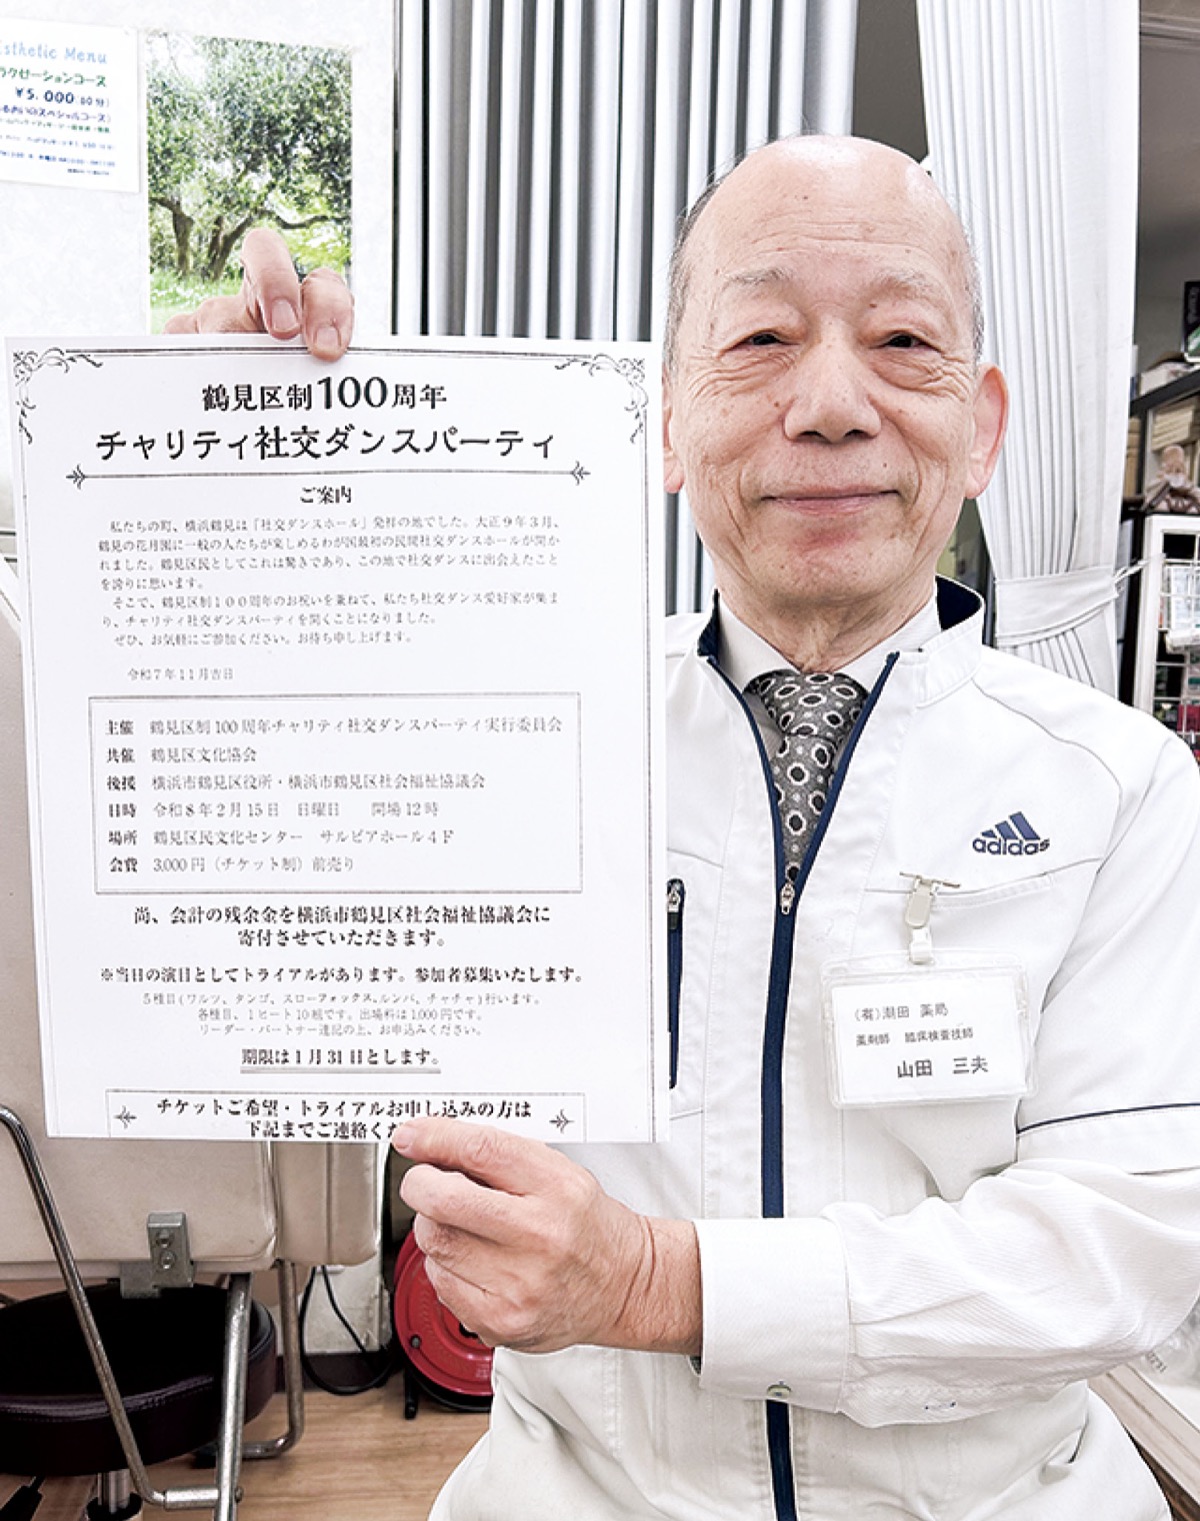 Esthetic Menu
ラクゼーションコース
¥5,000
鶴見区制100周年
チャリティ社交ダンスパーティ
ご案内
私たちの町、横浜鶴見は「社交ダンスホール」発祥の地でした。大正9年3月、
鶴見の花月園に一般の人たちが楽しめるわが国最初の民間社交ダンスホールが開か
れました。鶴見区民としてこれは驚きであり、この地で社交ダンスに出会えたこと
を誇りに思います。
そこで、鶴見区制100周年のお祝いを兼ねて、私たち社交ダンス愛好家が集ま
り、チャリティ社交ダンスパーティを開くことになりました。
ぜひ、お気軽にご参加ください。お待ち申し上げます。
令和7年11月吉日
主催 鶴見区制100周年チャリティ社交ダンスパーティ実行委員会
共催 鶴見区文化協会
後援 横浜市鶴見区役所・横浜市鶴見区社会福祉協議会
日時 令和8年2月15日 日曜日 開場12時
場所 鶴見区民文化センター サルビアホール4F
会費 3,000円（チケット制）前売り
尚、会計の残余金を横浜市鶴見区社会福祉協議会に
寄付させていただきます。
※当日の演目としてトライアルがあります。参加者募集いたします。
5種目(ワルツ、タンゴ、スローフォックス、ルンバ、チャチャ)行います。
各種目、1ヒート10組です。出場料は1,000円です。
リーダー・パートナー連記の上、お申込みください。
期限は1月31日とします。
チケットご希望・トライアルお申し込みの方は
下記までご連絡くだ
adidas
(有)潮田 薬局
薬剤師 臨床検査技師
山田 三夫